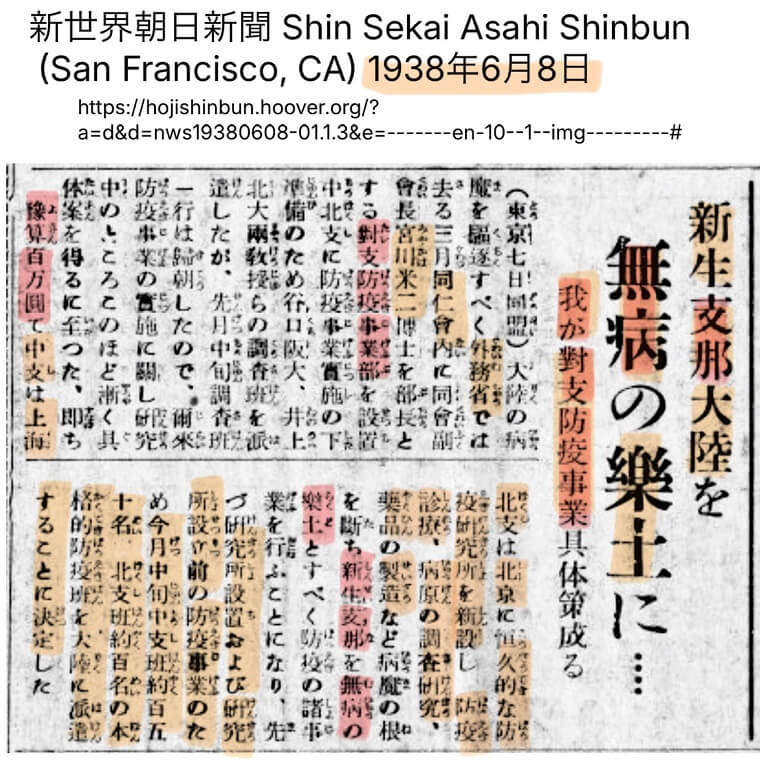 新世界朝日新聞 Shin Sekai Asahi Shinbun
(San Francisco, CA) 1938年6月8日
https://hojishinbun.hoover.org/?
a=d&d=nws19380608-01.1.3&e=-------en-10--1--img---------#
新生支那大陸を
無病の樂土に……
我が對支防疫事業具体策成る
（東京七日同盟）大陸の病
魔を驅逐すべく外務省では
去る三月同仁會內に同會副
會長宮川米二博士を部長と
する對支防疫事業部を設置
中北支に防疫事業實施の下
準備のため谷口阪大、井上
北大兩敎授らの調査班を派
遣したが、先月中旬調査班
一行は歸朝したので、爾來
防疫事業の實施に關し研究
中のところこのほど漸く具
体案を得るに至つた、卽ち
豫算百万圓で中支は上海
北支は北京に恒久的な防
疫研究所を新設し 防疫
診療、病原の調査研究、
藥品の製造など病魔の根
を斷ち新生支那を無病の
樂土とすべく防疫の諸事
業を行ふことになり、先
づ研究所設置および研究
所設立前の防疫事業のた
め今月中旬中支班約百五
十名、北支班約百名の本
格的防疫班を大陸に派遣
することに決定した